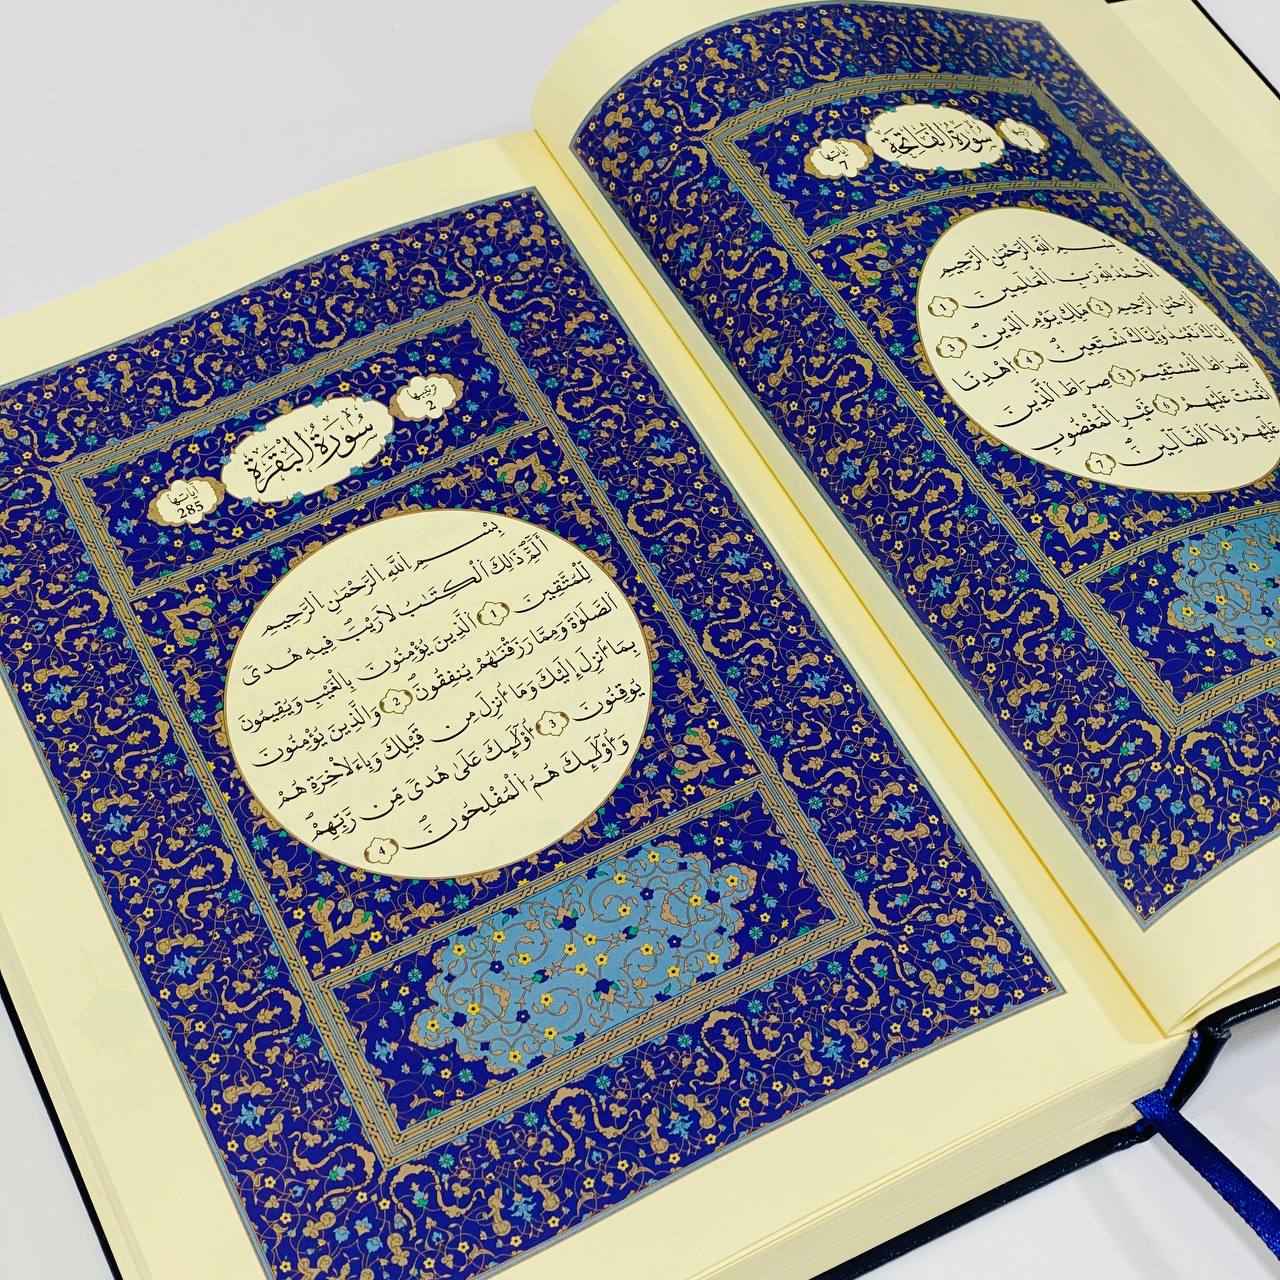 ترتيبها
1
سُورَةُ الْفَاتِحَةِ
آيَاتُهَا
7
بِسْمِ اِ۬للَّهِ اِ۬لرَّحْمَٰنِ اِ۬لرَّحِيمِ
اَ۬لْحَمْدُ لِلهِ رَبِّ اِ۬لْعَٰلَمِينَ 1
اَ۬لرَّحْمَٰنِ اِ۬لرَّحِيمِ 2 مَلِكِ يَوْمِ اِ۬لدِّينِ 3
إِيَّاكَ نَعْبُدُ وَإِيَّاكَ نَسْتَعِينُ 4 اُ۪هْدِنَا
اَ۬لصِّرَٰطَ اَ۬لْمُسْتَقِيمَ 5 صِرَٰطَ اَ۬لذِينَ
أَنْعَمْتَ عَلَيْهِمْ 6 غَيْرِ اِ۬لْمَغْضُوبِ
عَلَيْهِمْ وَلَا اَ۬لضَّآلِّينَ 7
ترتيبها
2
سُورَةُ الْبَقَرَةِ
آيَاتُهَا
285
بِسْمِ اِ۬للَّهِ اِ۬لرَّحْمَٰنِ اِ۬لرَّحِيمِ
أَلَٓمِّٓ ذَٰلِكَ اَ۬لْكِتَٰبُ لَا رَيْبَ فِيهِ هُدىٗ
لِّلْمُتَّقِينَ 1 اَ۬لذِينَ يُؤْمِنُونَ بِالْغَيْبِ وَيُقِيمُونَ
اَ۬لصَّلَوٰةَ وَمِمَّا رَزَقْنَٰهُمْ يُنفِقُونَ 2 وَالذِينَ يُؤْمِنُونَ
بِمَآ أُنزِلَ إِلَيْكَ وَمَآ أُنزِلَ مِن قَبْلِكَ وَبِالَاخِرَةِ هُمْ
يُوقِنُونَ 3 أُوْلَٰٓئِكَ عَلَىٰ هُدىٗ مِّن رَّبِّهِمْ
وَأُوْلَٰٓئِكَ هُمُ اُ۬لْمُفْلِحُونَ 4